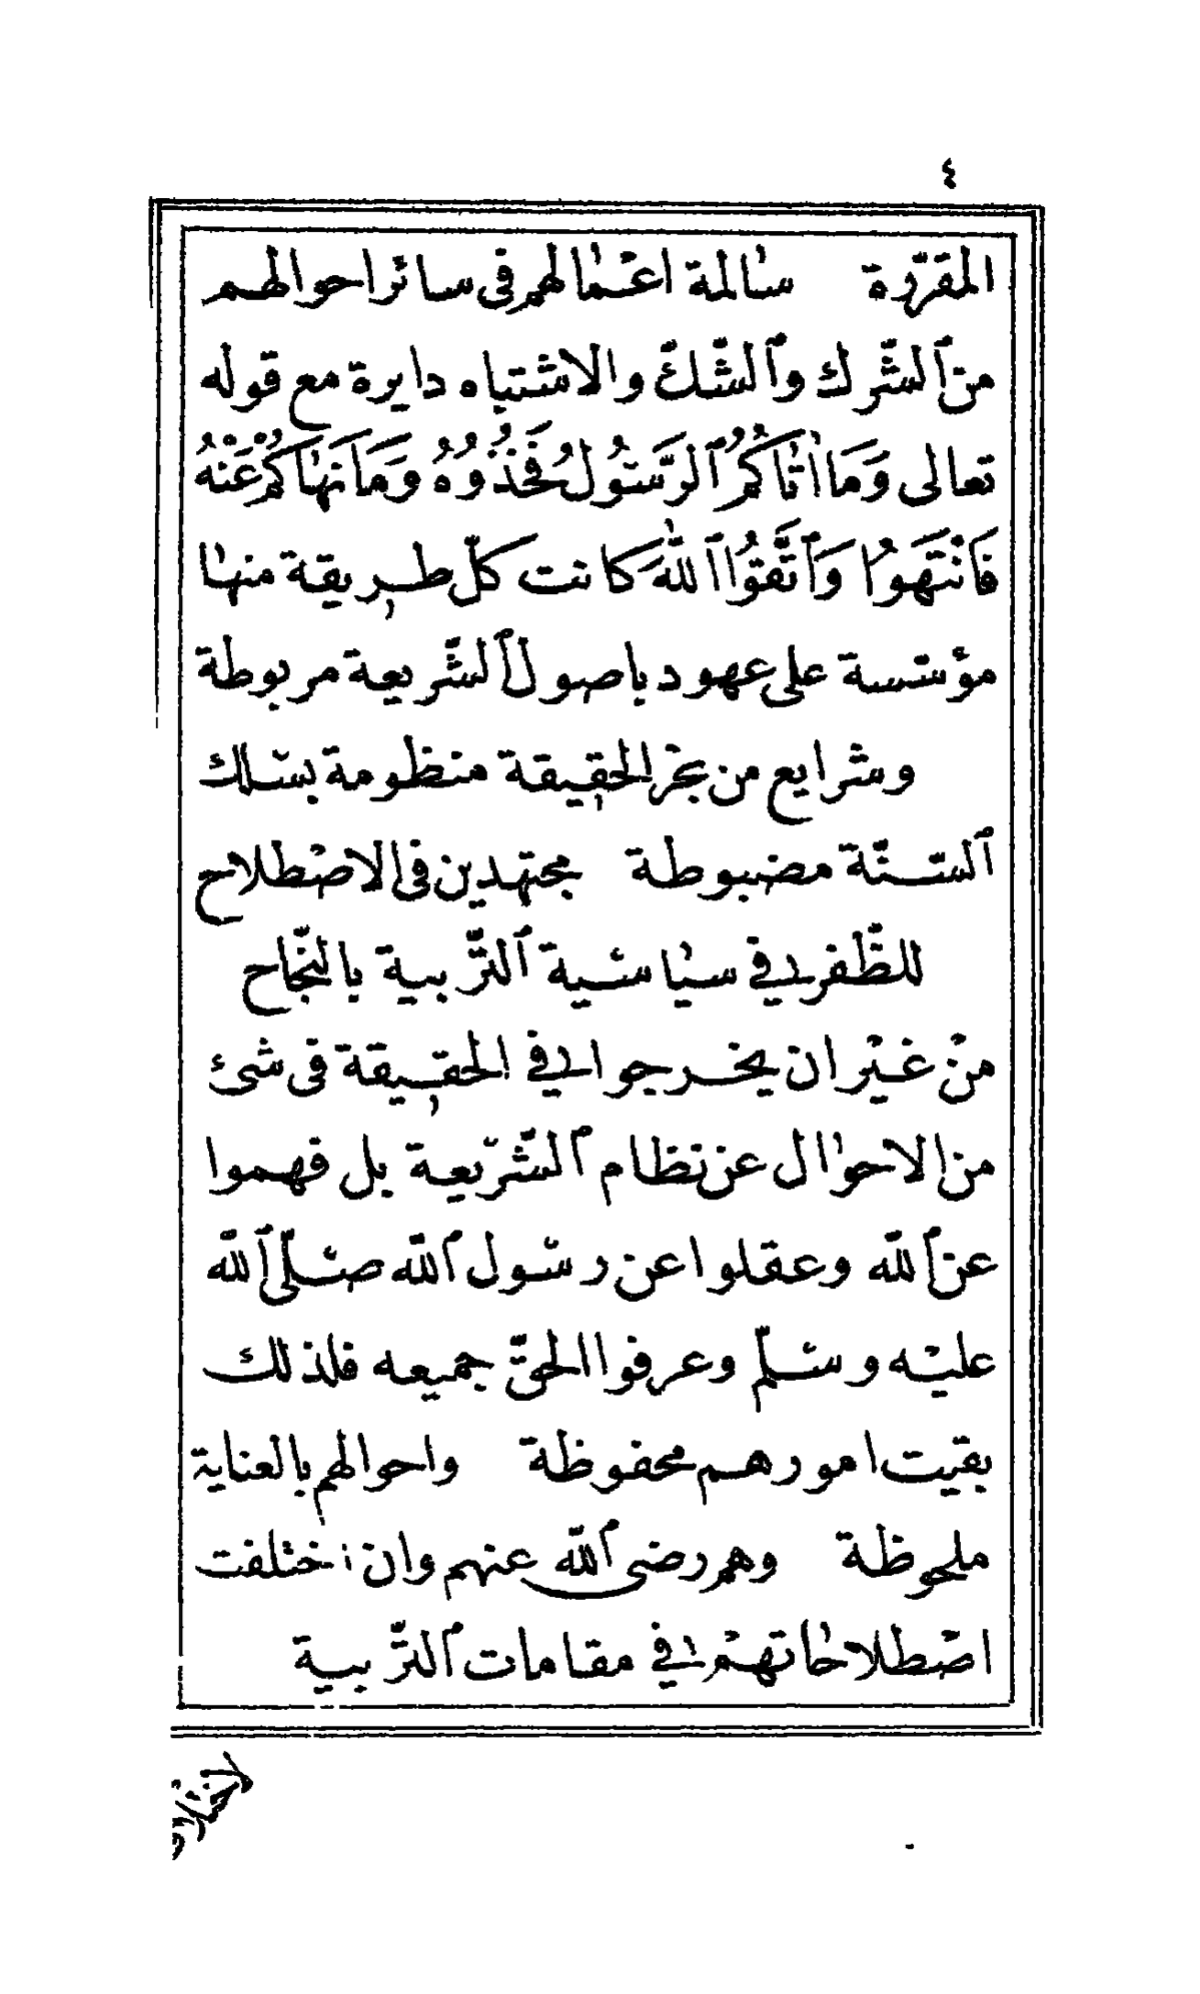 ٤
المقررّة سالمة اعمالهم فى سائر احوالهم
من الشّرك والشّك والاشتباه دايرة مع قوله
تعالى وَمَا اٰتَاكُمُ الرَّسُولُ فَخُذُوهُ وَمَا نَهٰاكُمْ عَنْهُ
فَانْتَهَوُا وَاتَّقُوا اللّٰهَ كانت كلّ طريقة منها
مؤسسة على عهود باصول الشّريعة مربوطة
وشرايع من بحر الحقيقة منظومة بسلك
السنّة مضبوطة مجتهدين فى الاصطلاح
للظّفر في سياسية التّربية بالنّجاح
من غير ان يخرجوا في الحقيقة فى شئ
من الاحوال عن نظام الشّريعة بل فهموا
عن اللّه وعقلوا عن رسول اللّه صلّى اللّه
عليه وسلّم وعرفوا الحقّ جميعه فلذلك
بقيت امورهم محفوظة واحوالهم بالعناية
ملحوظة وهم رضى اللّه عنهم وان اختلفت
اصطلاحاتهم في مقامات التّربية
لاختلاف